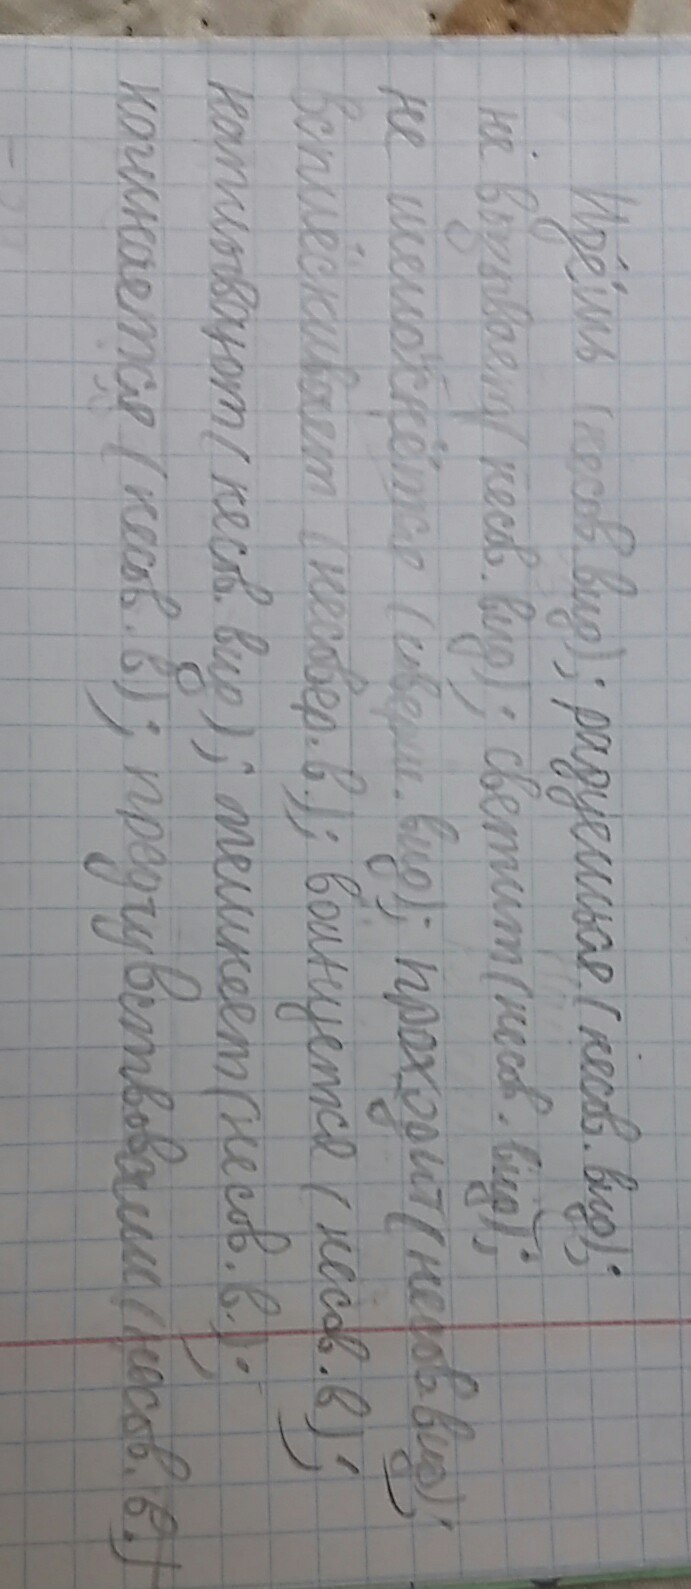 Идёшь (несов. вид); радуешься (несов. вид);
не вызывает (несов. вид); светит (несов. вид);
не шелохнётся (сверш. вид); проходит (несов вид);
всплёскивает (несовер. в.); волнуется (несов. в);
напывают (несов. вид); темнеет (несов. в.);
начинается (несов. в); предчувствовали (несов. в.)